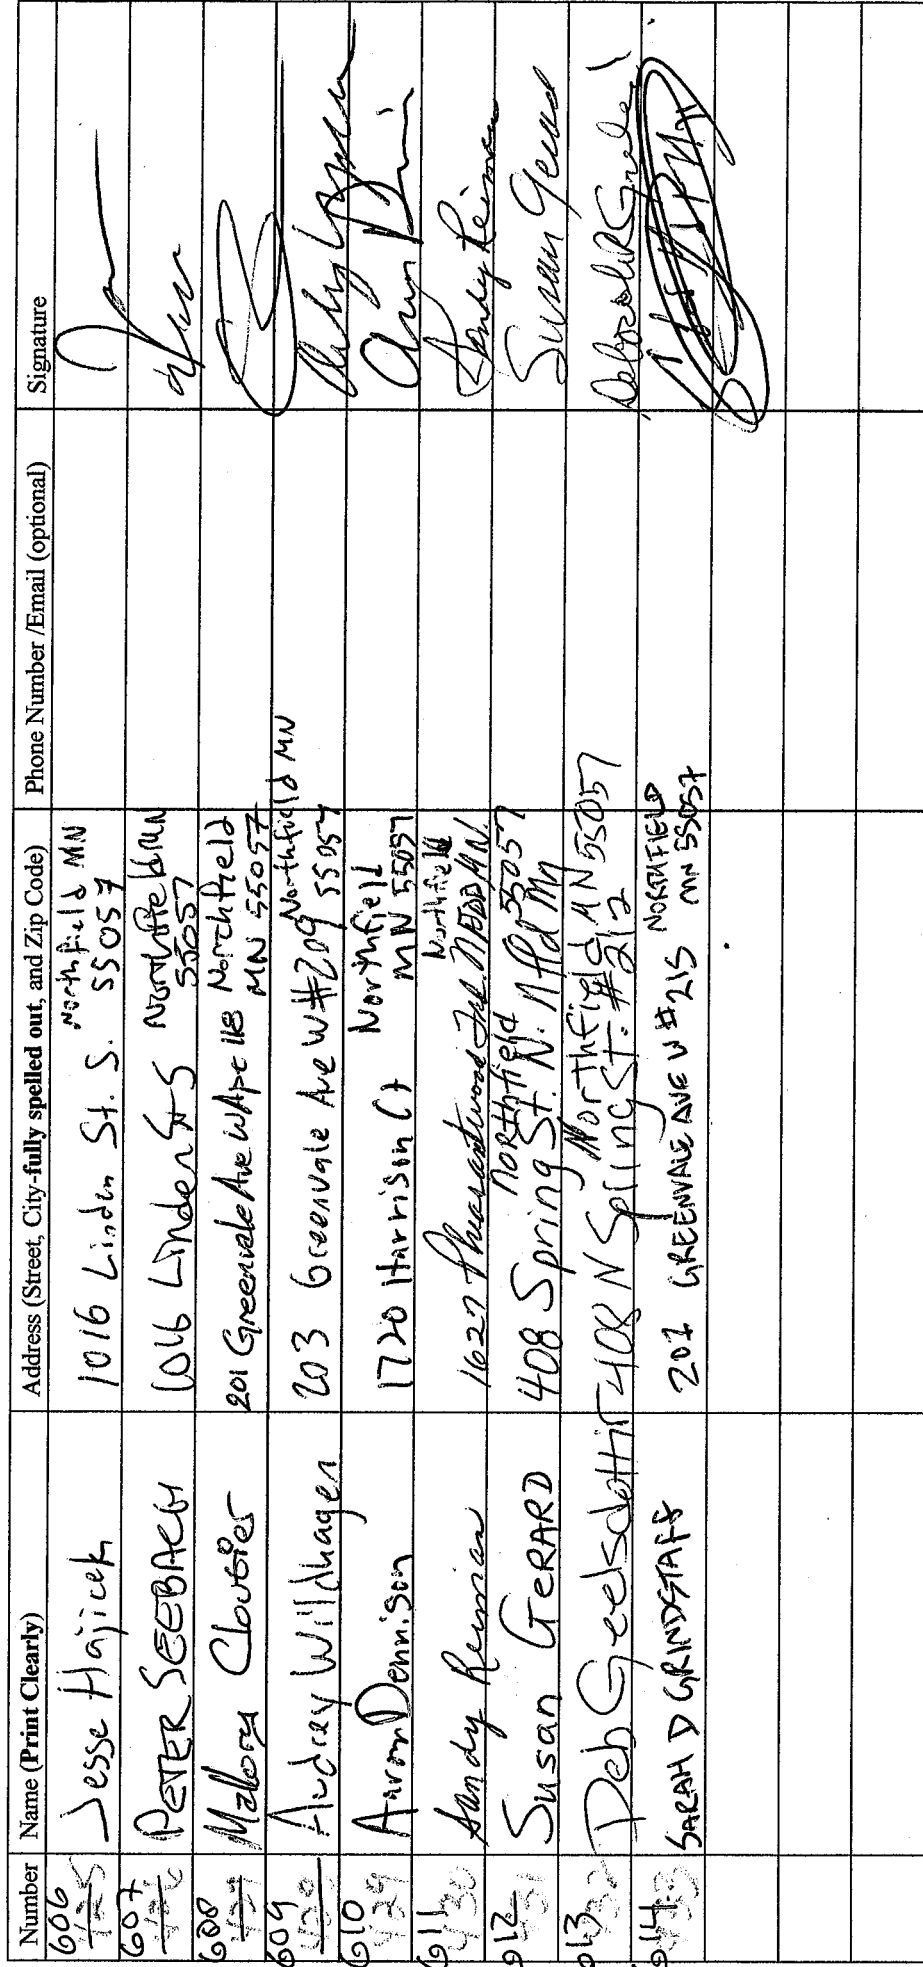 Number Name (Print Clearly) Address (Street, City-fully spelled out, and Zip Code) Phone Number /Email (optional) Signature
606 425 Jesse Hajicek 1016 Linden St. S. Northfield MN 55057
607 PETER SEEBACH 1016 Linden St S Northfield MN 55057
608 Mallory Cloutier 201 Greenvale Ave W Apt 118 Northfield MN 55057
609 Audrey Wildhagen 203 Greenvale Ave W #209 Northfield MN 55057
610 429 Aaron Dennison 1720 Harrison Ct Northfield MN 55057
611 430 Sandy Reiman 1627 Northfield MN.
612 431 Susan GERARD 408 Spring St. N. Nfld Mn Northfield 55057 Susan Gerard
613 432 Deb Geelsdottir 408 N Spring St. #212 Northfield MN 55057
614 SARAH D GRINDSTAFF 201 GREENVALE AVE W #215 NORTHFIELD MN 55057